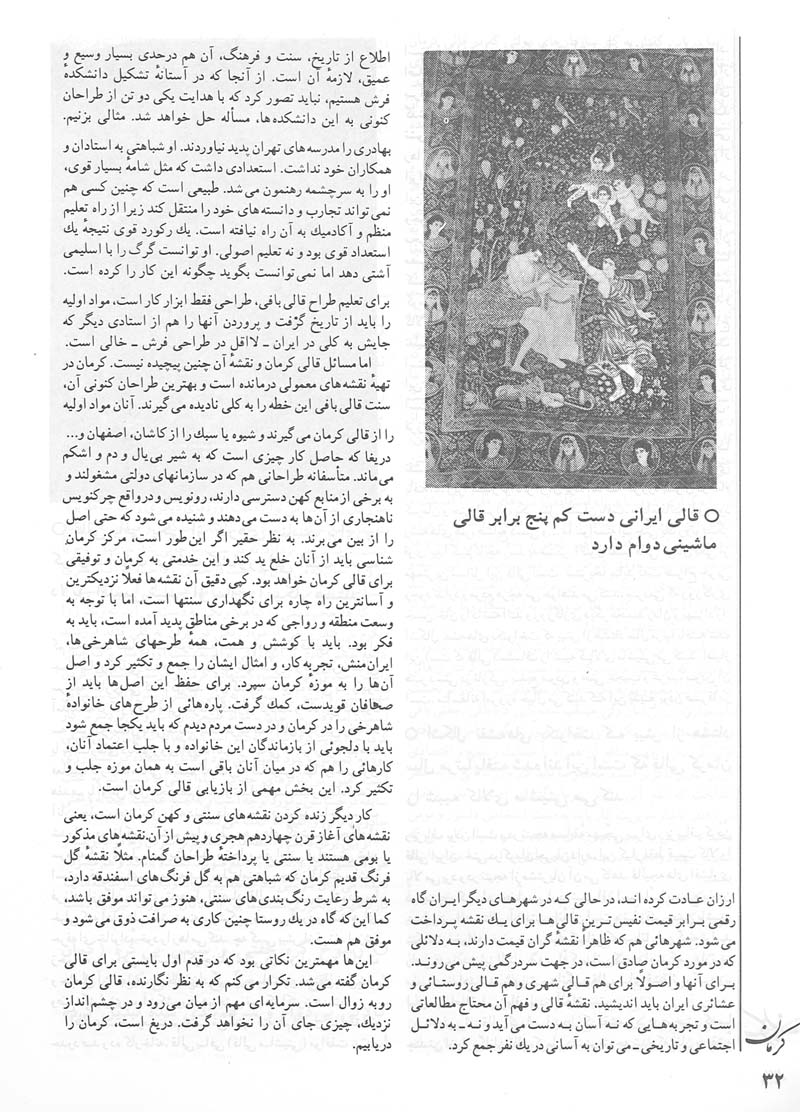 ○ قالی ایرانی دست کم پنج برابر قالی
ماشینی دوام دارد
ارزان عادت کرده اند، در حالی که در شهرهای دیگر ایران گاه
رقمی برابر قیمت نفیس ترین قالی ها برای یک نقشه پرداخت
می شود. شهرهائی هم که ظاهراً نقشه گران قیمت دارند، به دلائلی
که در مورد کرمان صادق است، در جهت سردرگمی پیش می روند.
برای آنها و اصولاً برای هم قالی شهری و هم قالی روستائی و
عشائری ایران باید اندیشید. نقشهٔ قالی و فهم آن محتاج مطالعاتی
است و تجربه هایی که نه آسان به دست می آید و نه ـ به دلائل
اجتماعی و تاریخی ـ می توان به آسانی در یک نفر جمع کرد.
اطلاع از تاریخ، سنت و فرهنگ، آن هم درحدی بسیار وسیع و
عمیق، لازمهٔ آن است. از آنجا که در آستانهٔ تشکیل دانشکدهٔ
فرش هستیم، نباید تصور کرد که با هدایت یکی دو تن از طراحان
کنونی به این دانشکده ها، مسأله حل خواهد شد. مثالی بزنیم.
بهادری را مدرسه های تهران پدید نیاوردند. او شباهتی به استادان و
همکاران خود نداشت. استعدادی داشت که مثل شامهٔ بسیار قوی،
او را به سرچشمه رهنمون می شد. طبیعی است که چنین کسی هم
نمی تواند تجارب و دانسته های خود را منتقل کند زیرا از راه تعلیم
منظم و آکادمیک به آن راه نیافته است. یک رکورد قوی نتیجهٔ یک
استعداد قوی بود و نه تعلیم اصولی. او توانست گرگ را با اسلیمی
آشتی دهد اما نمی توانست بگوید چگونه این کار را کرده است.
برای تعلیم طراح قالی بافی، طراحی فقط ابزار کار است، مواد اولیه
را باید از تاریخ گرفت و پروردن آنها را هم از استادی دیگر که
جایش به کلی در ایران ـ لااقل در طراحی فرش ـ خالی است.
اما مسائل قالی کرمان و نقشهٔ آن چنین پیچیده نیست. کرمان در
تهیهٔ نقشه های معمولی درمانده است و بهترین طراحان کنونی آن،
سنت قالی بافی این خطه را به کلی نادیده می گیرند. آنان مواد اولیه
را از قالی کرمان می گیرند و شیوه یا سبک را از کاشان، اصفهان و...
دریغا که حاصل کار چیزی است که به شیر بی یال و دم و اشکم
می ماند. متأسفانه طراحانی هم که در سازمانهای دولتی مشغولند و
به برخی از منابع کهن دسترسی دارند، رونویس و درواقع چرکنویس
ناهنجاری از آن ها به دست می دهند و شنیده می شود که حتی اصل
را از بین می برند. به نظر حقیر اگر این طور است، مرکز کرمان
شناسی باید از آنان خلع ید کند و این خدمتی به کرمان و توفیقی
برای قالی کرمان خواهد بود. کپی دقیق آن نقشه ها فعلاً نزدیکترین
و آسانترین راه چاره برای نگهداری سنتها است، اما با توجه به
وسعت منطقه و رواجی که در برخی مناطق پدید آمده است، باید به
فکر بود. باید با کوشش و همت، همهٔ طرحهای شاهرخی ها،
ایران منش، تجربه کار، و امثال ایشان را جمع و تکثیر کرد و اصل
آن ها را به موزهٔ کرمان سپرد. برای حفظ این اصل ها باید از
صحافان قویدست، کمک گرفت. پاره هائی از طرح های خانوادهٔ
شاهرخی را در کرمان و در دست مردم دیدم که باید یکجا جمع شود
باید با دلجوئی از بازماندگان این خانواده و با جلب اعتماد آنان،
کارهائی را هم که در میان آنان باقی است به همان موزه جلب و
تکثیر کرد. این بخش مهمی از بازیابی قالی کرمان است.
کار دیگر زنده کردن نقشه های سنتی و کهن کرمان است، یعنی
نقشه های آغاز قرن چهاردهم هجری و پیش از آن.نقشه های مذکور
یا بومی هستند یا سنتی یا پرداختهٔ طراحان گمنام. مثلاً نقشهٔ گل
فرنگ قدیم کرمان که شباهتی هم به گل فرنگ های اسفندقه دارد،
به شرط رعایت رنگ بندی های سنتی، هنوز می تواند موفق باشد،
کما این که گاه در یک روستا چنین کاری به صرافت ذوق می شود و
موفق هم هست.
این ها مهمترین نکاتی بود که در قدم اول بایستی برای قالی
کرمان گفته می شد. تکرار می کنم که به نظر نگارنده، قالی کرمان
روبه زوال است. سرمایه ای مهم از میان می رود و در چشم انداز
نزدیک، چیزی جای آن را نخواهد گرفت. دریغ است، کرمان را
دریابیم.
کرمان
۳۲